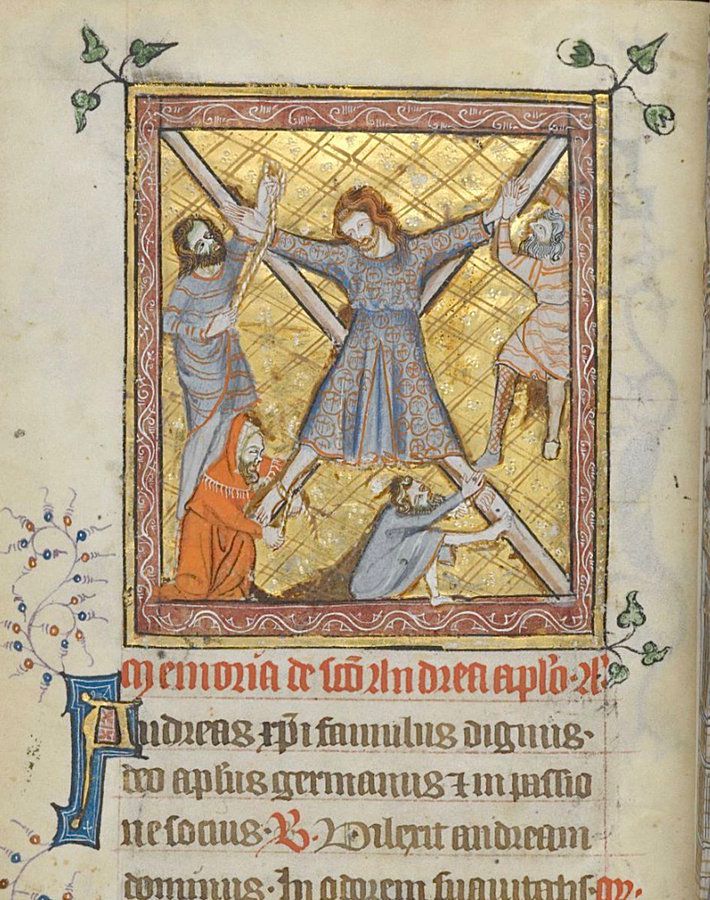 Memoria de scō Andrea aplō. Aꝰ
Andreas xp̄i famulus dignus
deo aplūs germanus ⁊ in passio
ne socius. R. Dilexit andream
dominus. In odorem suauitatis. Oꝛ.